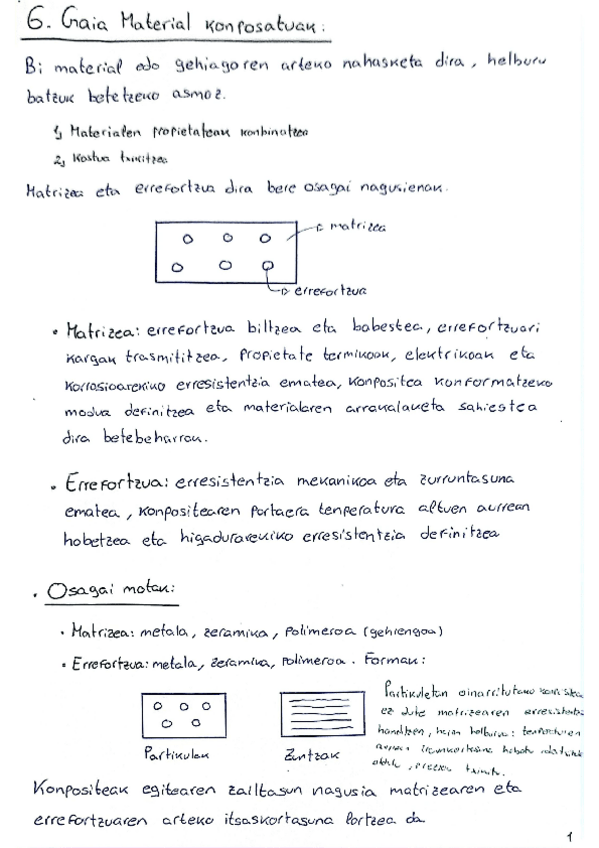 6. Gaia Material Konposatuak:
Bi material edo gehiagoren arteko nahasketa dira, helburu
batzuk betetzeko asmoz.
1, Materialen propietateak konbinatzea
2, Kostua txikitzea
Matrizea eta errefortzua dira bere osagai nagusienak.
matrizea
errefortzua
• Matrizea: errefortzua biltzea eta babestea, errefortzuari
kargak trasmititzea, propietate termikoak, elektrikoak eta
korrosioarekiko erresistentzia ematea, konpositea konformatzeko
modua definitzea eta materialaren arrakalaketa sahiestea
dira betebeharrak.
• Errefortzua: erresistentzia mekanikoa eta zurruntasuna
ematea, konpositearen portaera tenperatura altuen aurrean
hobetzea eta higadurarekiko erresistentzia definitzea
• Osagai motak:
• Matrizea: metala, zeramika, polimeroa (gehiengoa)
• Errefortzua: metala, zeramika, polimeroa. Formak:
Partikulak
Zuntzak
Partikuletan oinarritutako
ez dute matrizearen
handitzen, helburua:
aurrean hobetu
Konpositeak egitearen zailtasun nagusia matrizearen eta
errefortzuaren arteko itsaskortasuna lortzea da.
1